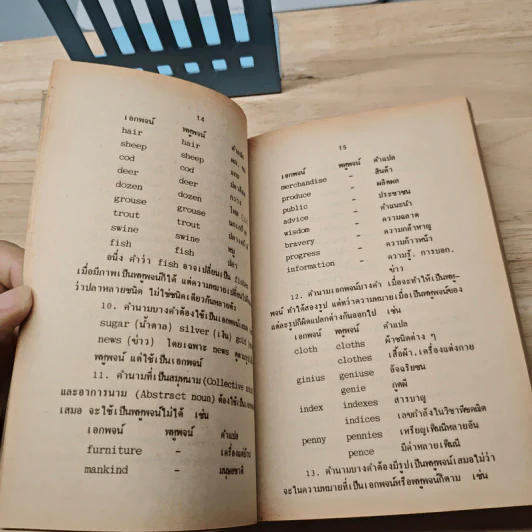 14
เอกพจน์ พหูพจน์
hair hair
sheep sheep
cod cod
deer deer
dozen dozen
grouse grouse
trout trout
swine swine
fish fish
อนึ่ง คำว่า fish อาจเปลี่ยนเป็น
เมื่อมีภาพเป็นพหูพจน์ก็ได้ แต่ความหมาย
ว่าปลาหลายชนิด ไม่ใช่ชนิดเดียวกันหลายตัว
10. คำนามบางคำต้องใช้เป็นเอกพจน์
sugar (น้ำตาล) silver (เงิน)
news (ข่าว) โดยเฉพาะ news
พหูพจน์ แต่ใช้เป็นเอกพจน์
11. คำนามที่เป็นสมุหนาม (Collective
และอาการนาม (Abstract noun) ต้องใช้เป็น
เสมอ จะใช้เป็นพหูพจน์ไม่ได้ เช่น
เอกพจน์ พหูพจน์ คำแปล
furniture -
mankind - มนุษยชาติ
15
เอกพจน์ พหูพจน์ คำแปล
merchandise - สินค้า
produce - ผลิตผล
public - ประชาชน
advice - คำแนะนำ
wisdom - ความฉลาด
bravery - ความกล้าหาญ
progress - ความก้าวหน้า
information - ความรู้, การบอก,
ข่าว
12. คำนามเอกพจน์บางคำ เมื่อจะทำให้เป็นพหู-
พจน์ ทำได้สองรูป แต่ทว่าความหมายเมื่อเป็นพหูพจน์ของ
แต่ละรูปก็ผิดแปลกต่างกันออกไป เช่น
เอกพจน์ พหูพจน์ คำแปล
cloth cloths ผ้าชนิดต่าง ๆ
clothes เสื้อผ้า, เครื่องแต่งกาย
ginius geniuse อัจฉริยชน
genie ภูตผี
index indexes สารบาญ
indices เลขกำลังในวิชาพีชคณิต
penny pennies เหรียญเพ็นนีหลายอัน
pence มีค่าหลายเพ็นนี
13. คำนามบางคำต้องมีรูปเป็นพหูพจน์เสมอไม่ว่า
จะในความหมายที่เป็นเอกพจน์หรือพหูพจน์ก็ตาม เช่น